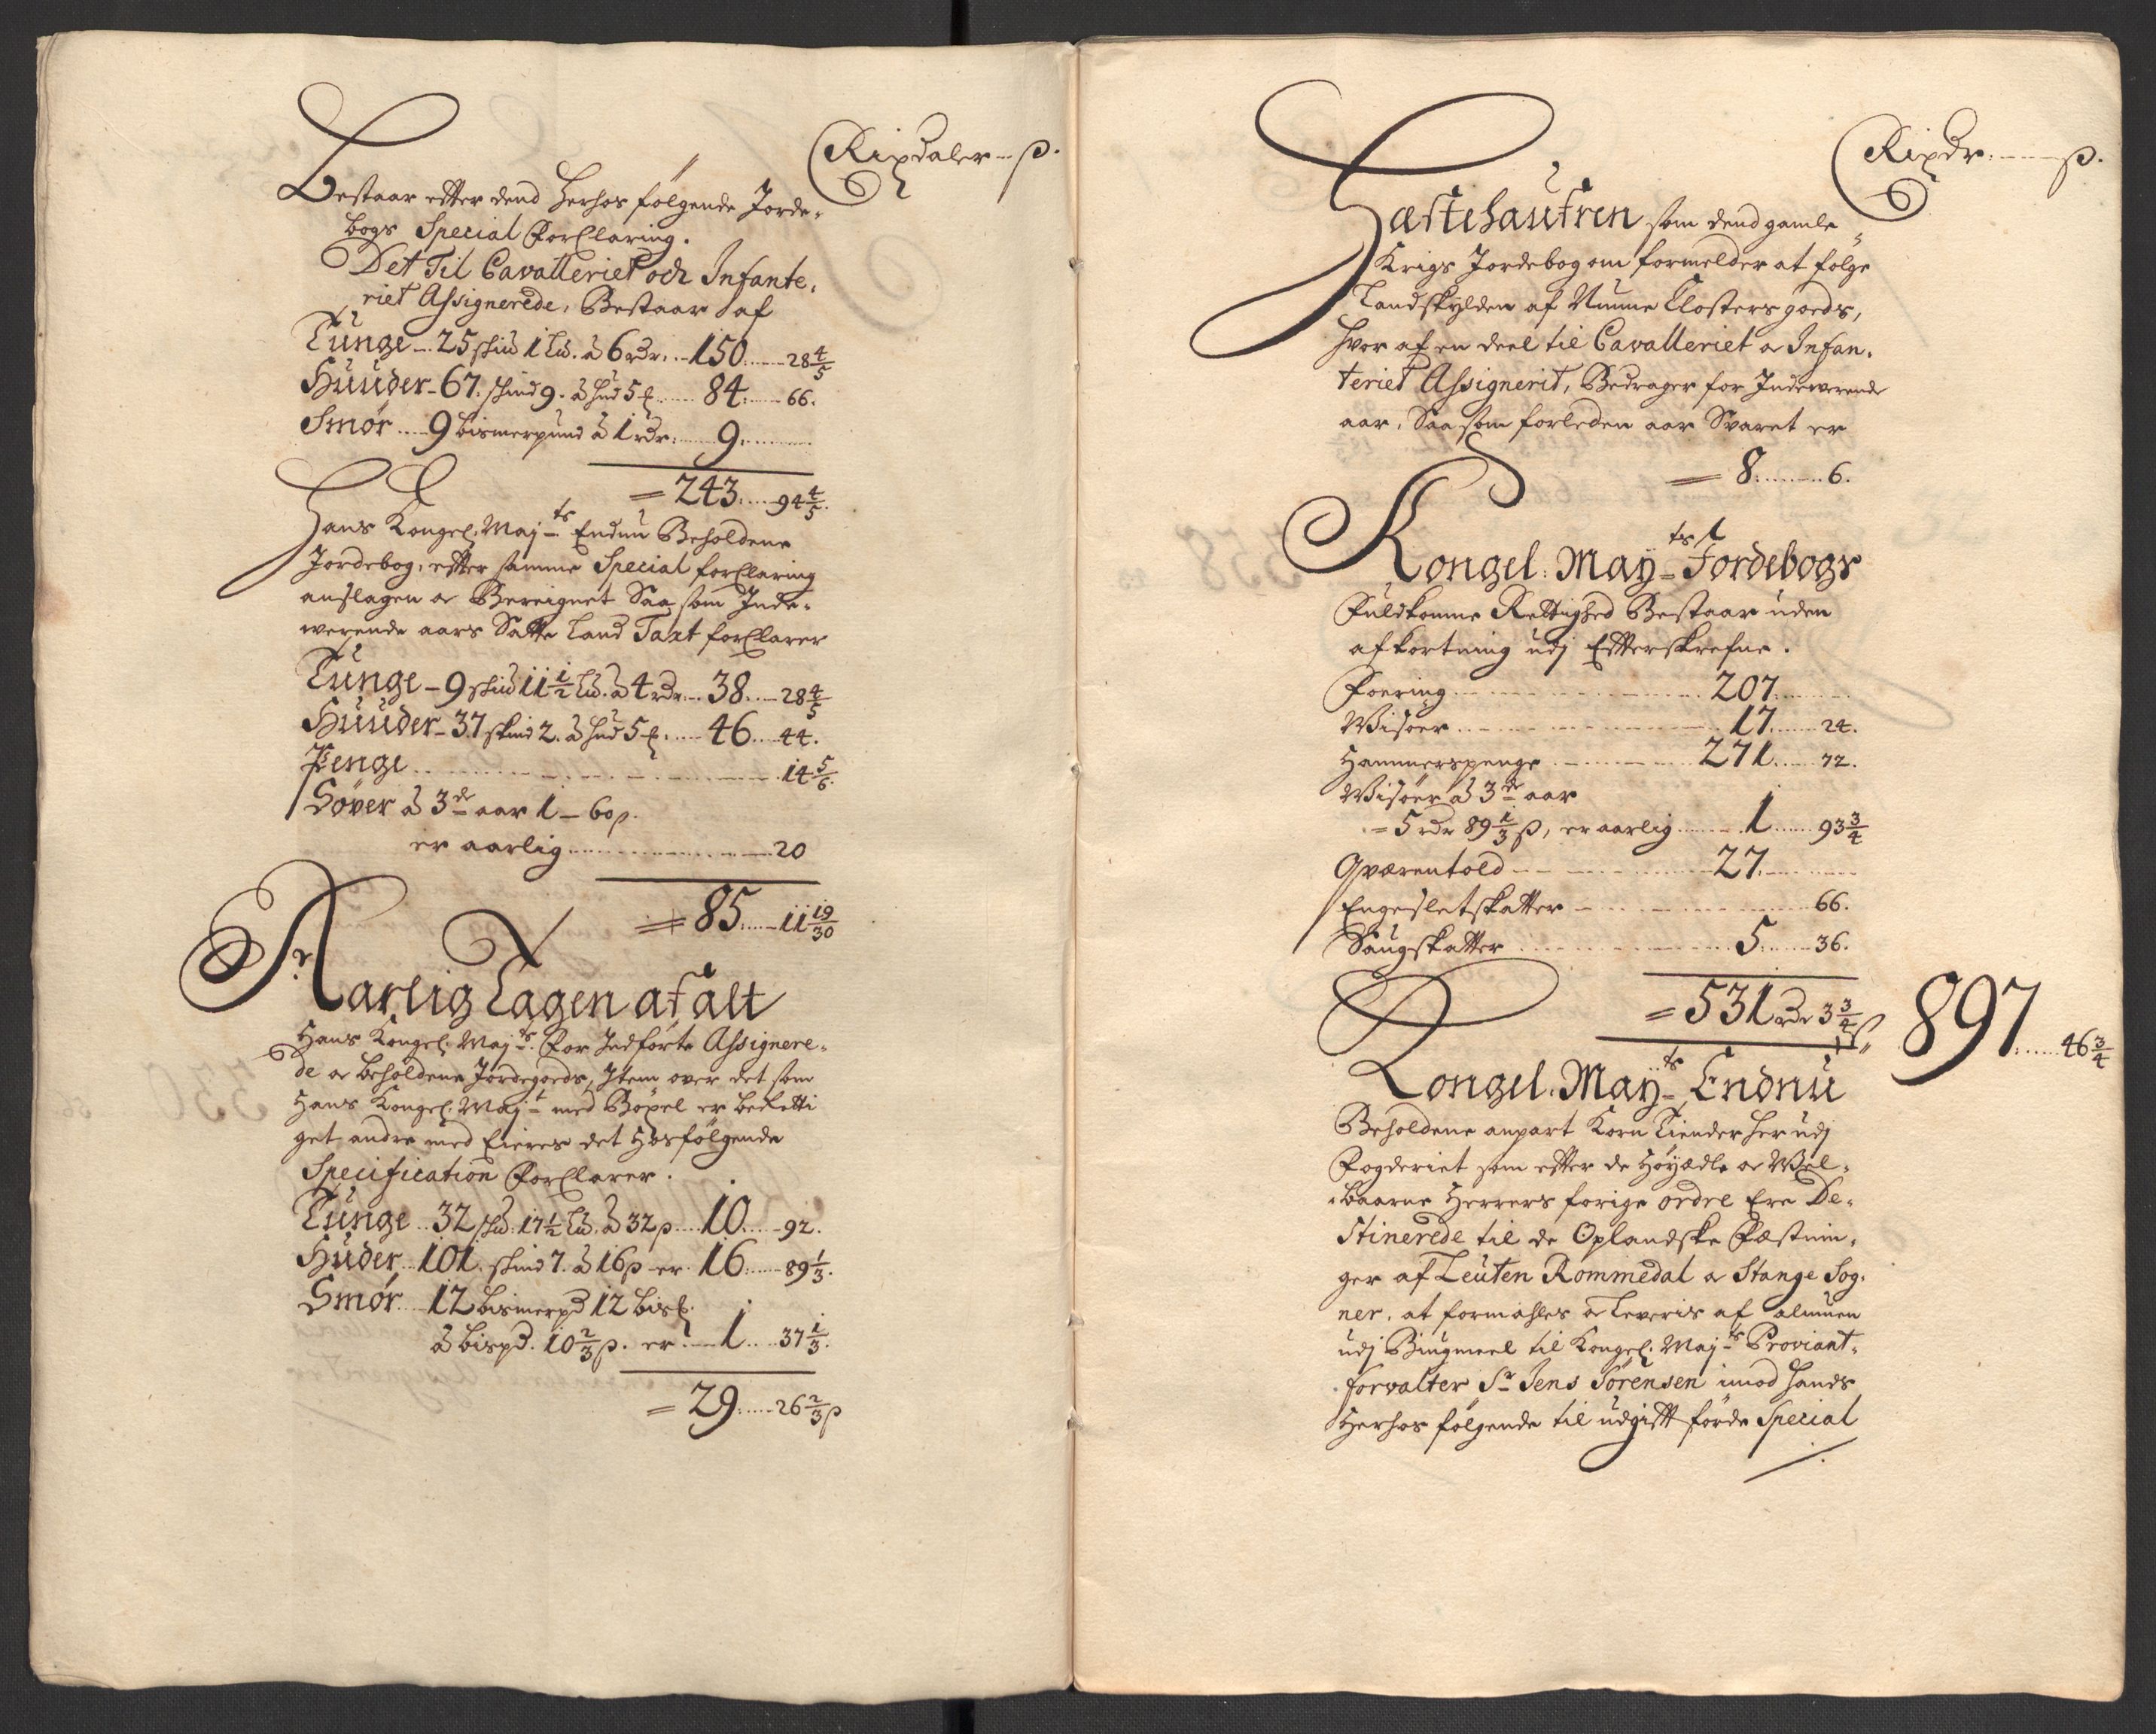 Rixdaler – ß.
Bestaar efter dend herhos følgende Jorde-
bogs Special Forklaring.
Det Til Cavalleriet och Infante-
riet Assignerede, Bestaar af
Tunge – 25 skud 1 Ld. à 6 rdr. – 150 – 28 4/5
Huuder – 67. skind 9. à hud 5 ... – 84 – 66.
Smør – 9 bismerpund à 1 rdr. – 9.
= 243 – 94 4/5.
Hans Kongel. Maj-ts Endnu Beholdene
Jordebog, efter samme Special forklaring
anslagen oc Bereignet Saa som Inde-
werende aars Satte Land Taxt forklarer
Tunge – 9 skud 11 1/2 Ld. à 4 rdr – 38 – 28 4/5
Huuder – 37 skind 2. à hud 5 ... – 46 – 44.
Penge – 14 5/6.
Søver à 3de aar 1 – 60 ß.
er aarlig – 20
= 85 – 11 19/30
Aarlig Tagen af alt
Hans Kongel. Maj-ts. For Indførte Assignere-
de oc beholdene Jordegods, Item over det som
Hans Kongel. Maj-t med Bøxel er beretti
get andre med Eieres det Hosfølgende
Specification Forklarer.
Tunge – 32 skud. 17 1/2 Ld. à 32 ß – 10 – 92.
Huder – 101. skind 7. à 16 ß er 16 – 89 1/3.
Smør – 12 bismerpd 12 bis...
à bispd. 10 2/3 ß. er – 1 – 37 1/3.
= 29 – 26 2/3 ß
Rixdr. – ß.
Fæstehaufren som dend gamle
Krigs Jordebog om formelder at følge
Landskylden af Numme Closters goeds,
hvor af en deel til Cavalleriet oc Infan-
teriet Assignerit, Bedrager for Indewerende
aar, Saa som forleden aar Svaret er
= 8 – 6.
Kongel. May-ts Jordebogs
Fuldkomne Rettighed Bestaar uden
afkortning udj Efterskrefne.
Foering – 207
Wisøer – 17 – 24.
Hammerspenge – 271 – 72.
Wisøer à 3de aar
= 5 rdr 89 1/3 ß, er aarlig – 1 – 93 3/4
Qværentold – 27
Engesletskatter – 66.
Saugskatter – 5 – 36.
= 531 rdr 3 3/4 ß
897 – 46 3/4
Kongel. May-ts Endnu
Beholdene anpart Korn Tiender her udj
Fogderiet som efter de Høyædle oc Wel-
baarne Herrers forige ordre Ere De-
stinerede til de Oplandske Fæstnin-
ger af Leuten Rommedal oc Stange Sog-
ner, at formahles oc Leveris af almuen
udj Biugmeel til Kongel. Maj-ts Proviant-
forvalter Sr Jens Sørensen imod hands
Herhos følgende til udgift førde Special